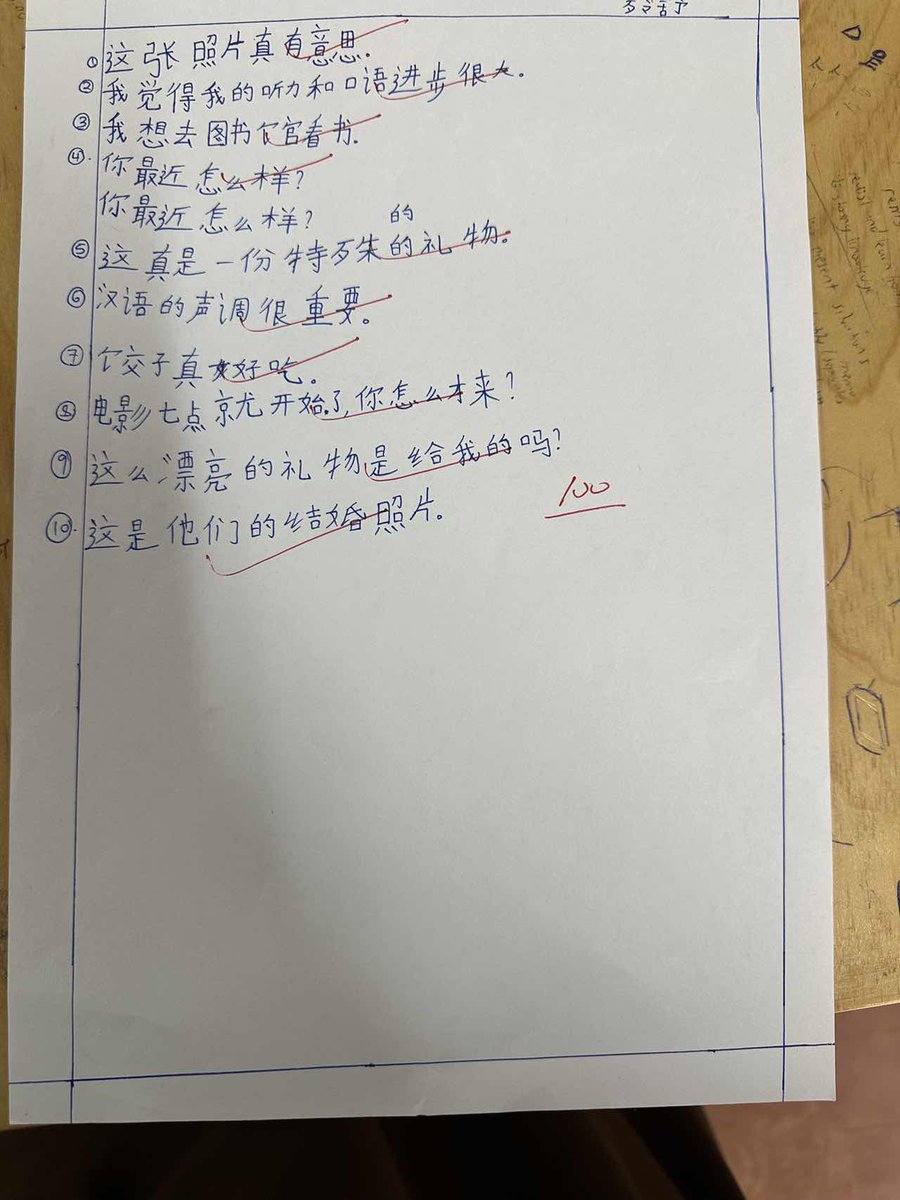 ① 这张照片真有意思.
② 我觉得我的听力和口语进步很大.
③ 我想去图书馆看书.
④. 你最近怎么样?
你最近怎么样? 的
⑤ 这真是一份特殊的礼物。
⑥ 汉语的声调很重要。
⑦ 饺子真好吃.
⑧ 电影七点就开始了,你怎么才来?
⑨ 这么漂亮的礼物是给我的吗?
100
⑩. 这是他们的结婚照片.